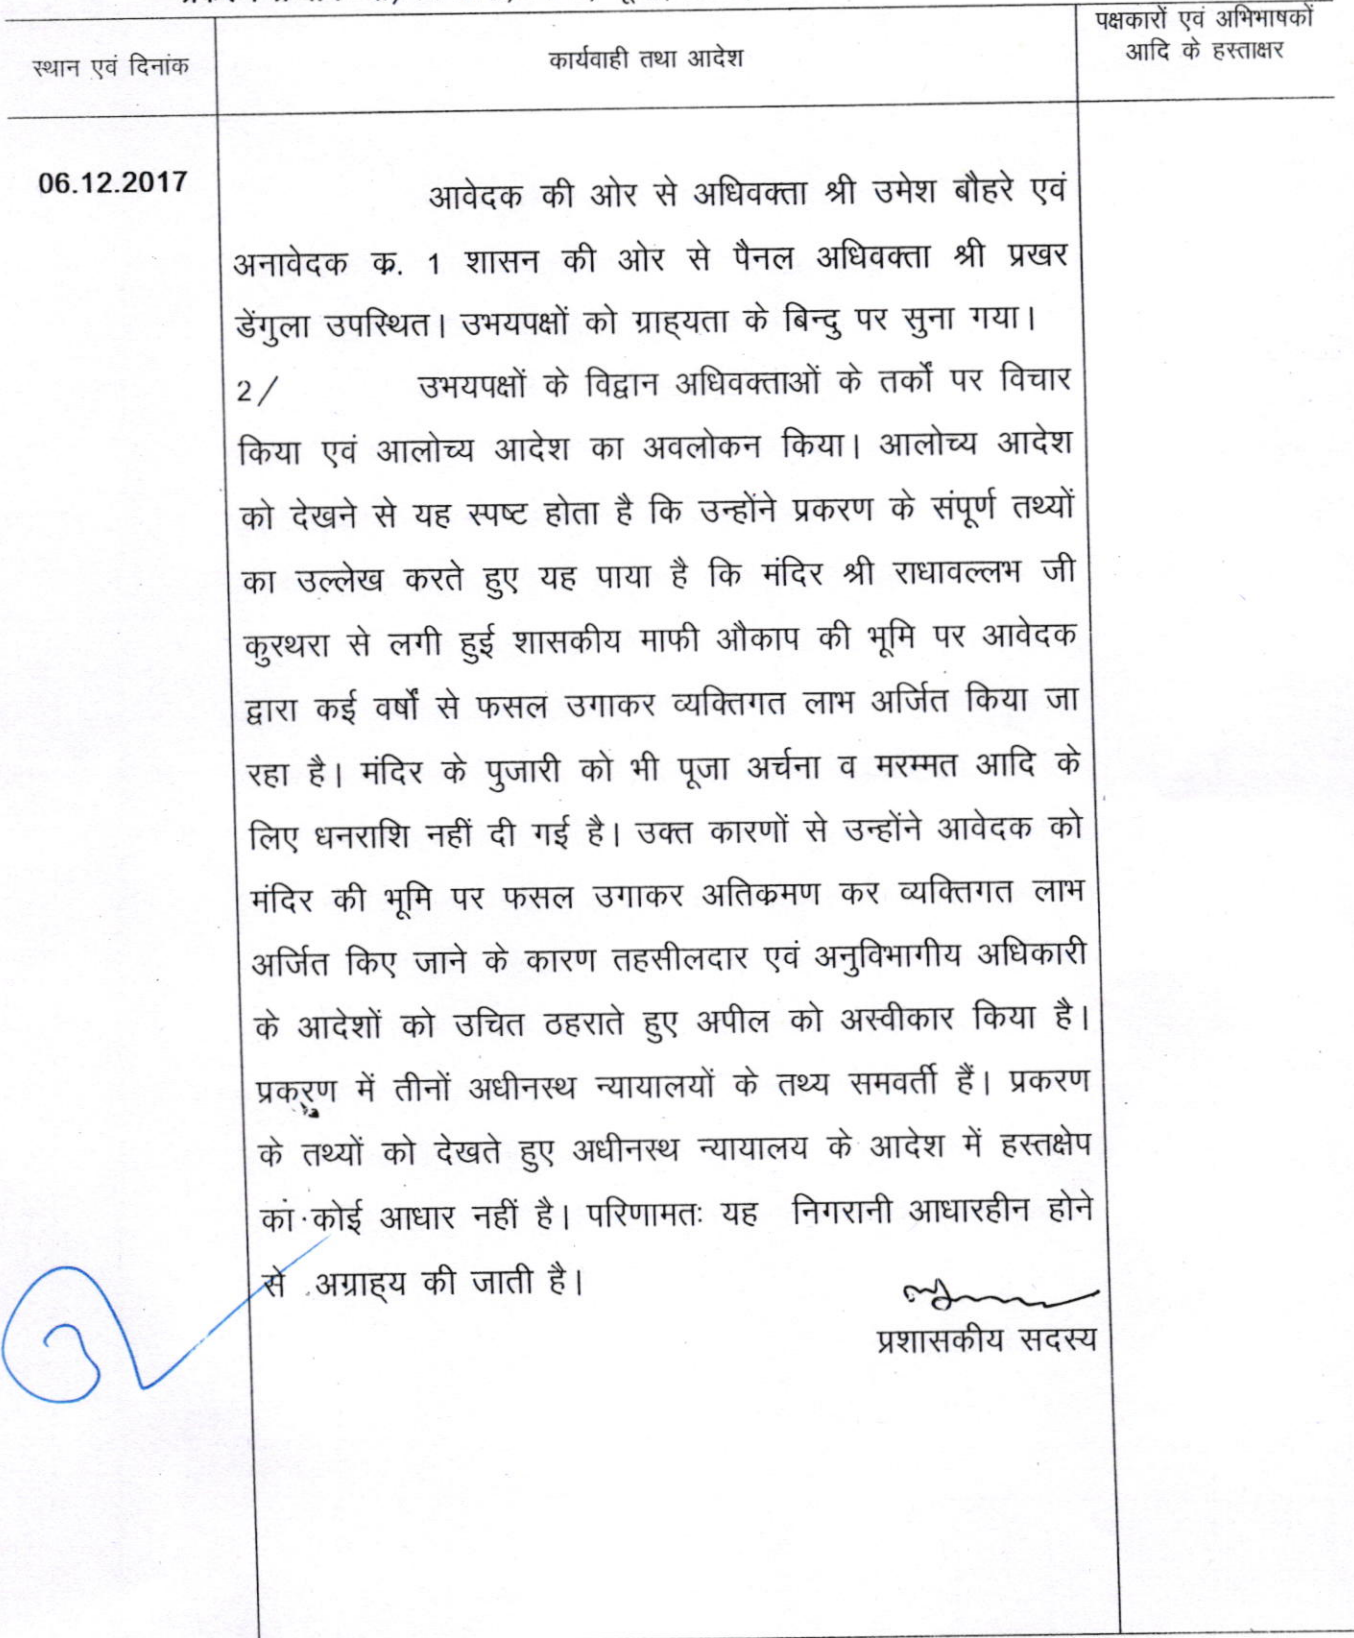 स्थान एवं दिनांक
कार्यवाही तथा आदेश
पक्षकारों एवं अभिभाषकों
आदि के हस्ताक्षर
06.12.2017
आवेदक की ओर से अधिवक्ता श्री उमेश बौहरे एवं
अनावेदक क्र. 1 शासन की ओर से पैनल अधिवक्ता श्री प्रखर
डेंगुला उपस्थित। उभयपक्षों को ग्राह्यता के बिन्दु पर सुना गया।
2/ उभयपक्षों के विद्वान अधिवक्ताओं के तर्कों पर विचार
किया एवं आलोच्य आदेश का अवलोकन किया। आलोच्य आदेश
को देखने से यह स्पष्ट होता है कि उन्होंने प्रकरण के संपूर्ण तथ्यों
का उल्लेख करते हुए यह पाया है कि मंदिर श्री राधावल्लभ जी
कुरथरा से लगी हुई शासकीय माफी औकाप की भूमि पर आवेदक
द्वारा कई वर्षों से फसल उगाकर व्यक्तिगत लाभ अर्जित किया जा
रहा है। मंदिर के पुजारी को भी पूजा अर्चना व मरम्मत आदि के
लिए धनराशि नहीं दी गई है। उक्त कारणों से उन्होंने आवेदक को
मंदिर की भूमि पर फसल उगाकर अतिक्रमण कर व्यक्तिगत लाभ
अर्जित किए जाने के कारण तहसीलदार एवं अनुविभागीय अधिकारी
के आदेशों को उचित ठहराते हुए अपील को अस्वीकार किया है।
प्रकरण में तीनों अधीनस्थ न्यायालयों के तथ्य समवर्ती हैं। प्रकरण
के तथ्यों को देखते हुए अधीनस्थ न्यायालय के आदेश में हस्तक्षेप
का कोई आधार नहीं है। परिणामतः यह निगरानी आधारहीन होने
से अग्राह्य की जाती है।
प्रशासकीय सदस्य